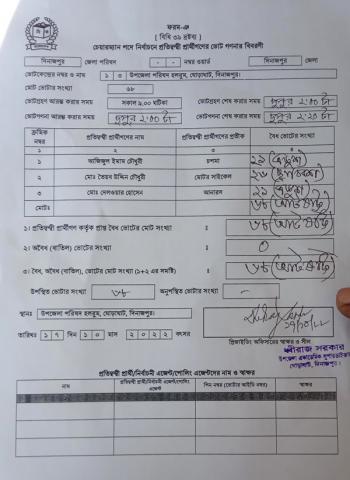 ফরম-ঞ
[ বিধি ৩৯ দ্রষ্টব্য ]
চেয়ারম্যান পদে নির্বাচনে প্রতিদ্বন্দ্বী প্রার্থীগণের ভোট গণনার বিবরণী
দিনাজপুর জেলা পরিষদ - - নম্বর ওয়ার্ড দিনাজপুর জেলা
ভোটকেন্দ্রের নম্বর ও নাম ১ ৩ উপজেলা পরিষদ হলরুম, ঘোড়াঘাট, দিনাজপুর।
মোট ভোটার সংখ্যা ৬৮
ভোটগ্রহণ আরম্ভ করার সময় সকাল ৯.০০ ঘটিকা ভোটগ্রহণ শেষ করার সময় দুপুর ২:০০ টা
ভোটগণনা আরম্ভ করার সময় দুপুর ২:০০ টা ভোটগণনা শেষ করার সময় দুপুর ২:২০ টা
ক্রমিক নম্বর প্রতিদ্বন্দ্বী প্রার্থীগণের নাম প্রতিদ্বন্দ্বী প্রার্থীগণের প্রতীক বৈধ ভোটের সংখ্যা
১ ২ ৩ ৪
১ আজিজুল ইমাম চৌধুরী চশমা ২১ (একুশ)
২ মোঃ তৈয়ব উদ্দিন চৌধুরী মোটর সাইকেল ২৬ (ছাব্বিশ)
৩ মোঃ দেলওয়ার হোসেন আনারস ২১ (একুশ)
মোটঃ ৬৮ (আটষট্টি)
১। প্রতিদ্বন্দ্বী প্রার্থীগণ কর্তৃক প্রাপ্ত বৈধ ভোটের মোট সংখ্যা : ৬৮ (আটষট্টি)
২। অবৈধ (বাতিল) ভোটের সংখ্যা : ০
৩। বৈধ, অবৈধ (বাতিল), ভোটের মোট সংখ্যা (১+২ এর সমষ্টি) : ৬৮ (আটষট্টি)
উপস্থিত ভোটার সংখ্যা ৬৮ অনুপস্থিত ভোটার সংখ্যা -
স্থানঃ উপজেলা পরিষদ হলরুম, ঘোড়াঘাট, দিনাজপুর।
তারিখঃ ১ ৭ দিন ১ ০ মাস ২ ০ ২ ২ বৎসর
১৭/১০/২২
প্রিজাইডিং অফিসারের স্বাক্ষর ও সীল
ধীরাজ সরকার
উপজেলা একাডেমিক সুপারভাইজার
ঘোড়াঘাট, দিনাজপুর।
প্রতিদ্বন্দ্বী প্রার্থী/নির্বাচনী এজেন্ট/পোলিং এজেন্টদের নাম ও স্বাক্ষর
নাম প্রতিদ্বন্দ্বী প্রার্থী/নির্বাচনী এজেন্ট/পোলিং এজেন্ট পিন নম্বর (ভোটার আইডি নম্বর) স্বাক্ষর